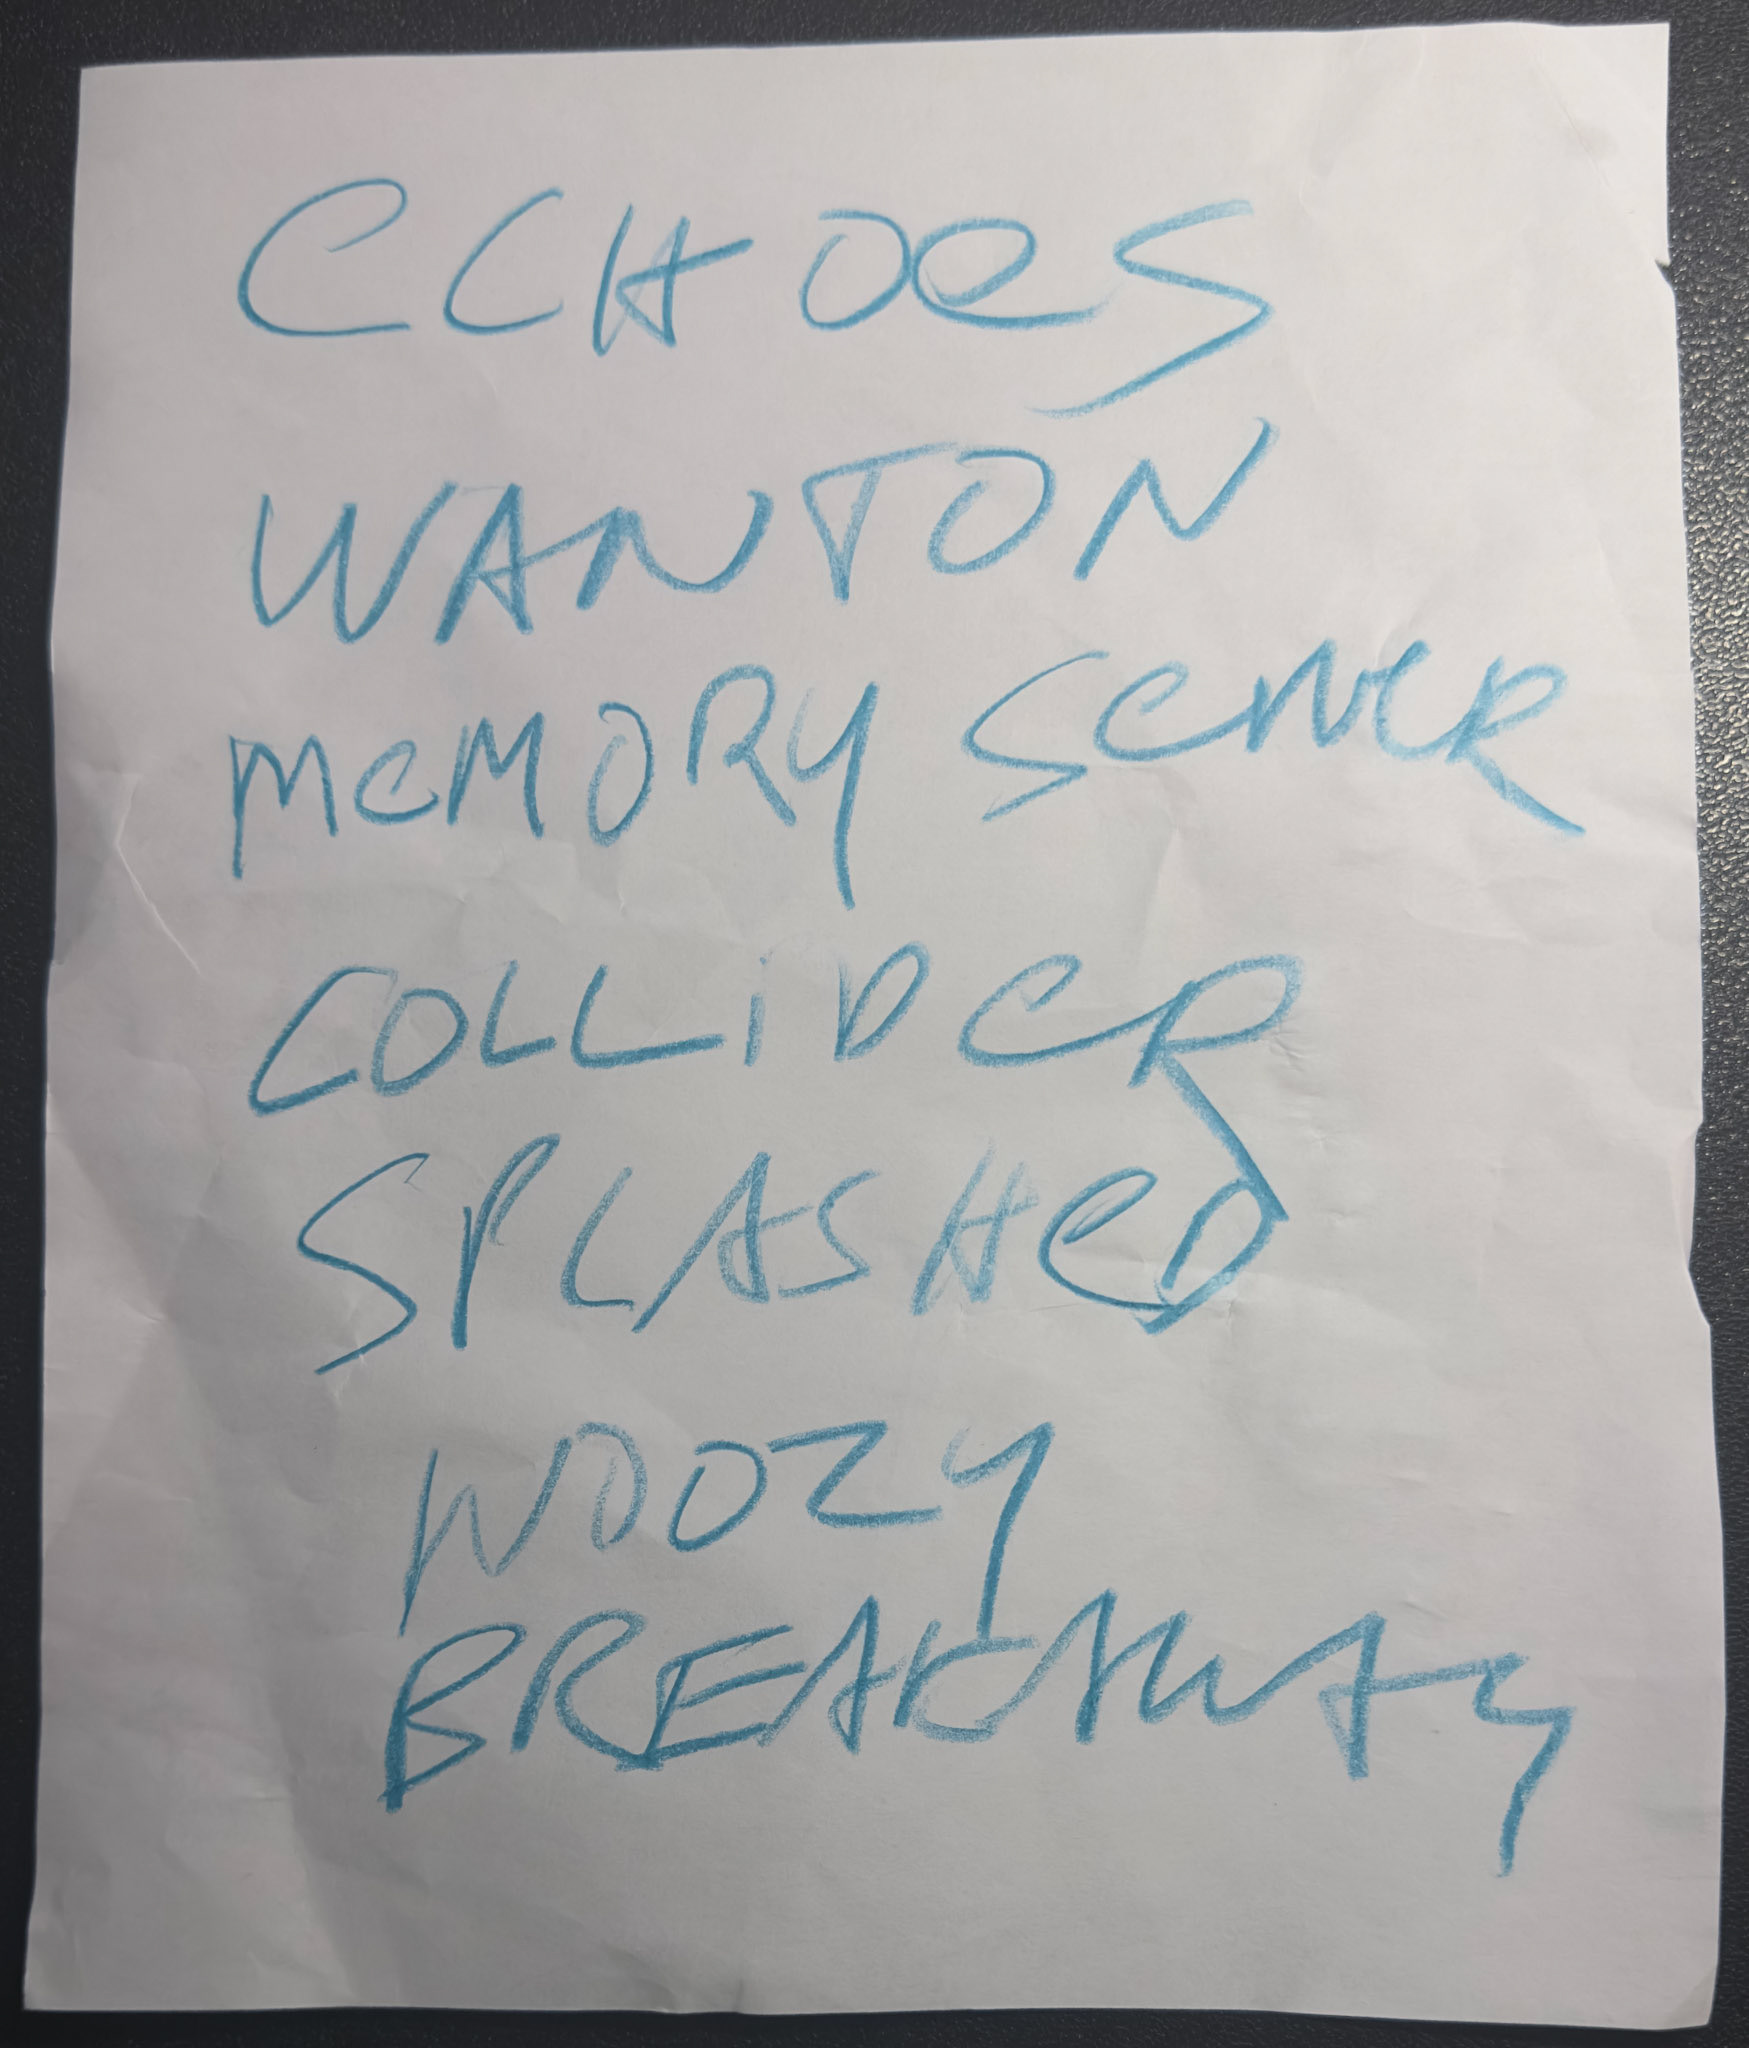 ECHOES
WANTON
MEMORY SEWER
COLLIDER
SPLASHED
WOOZY
BREAKAWAY